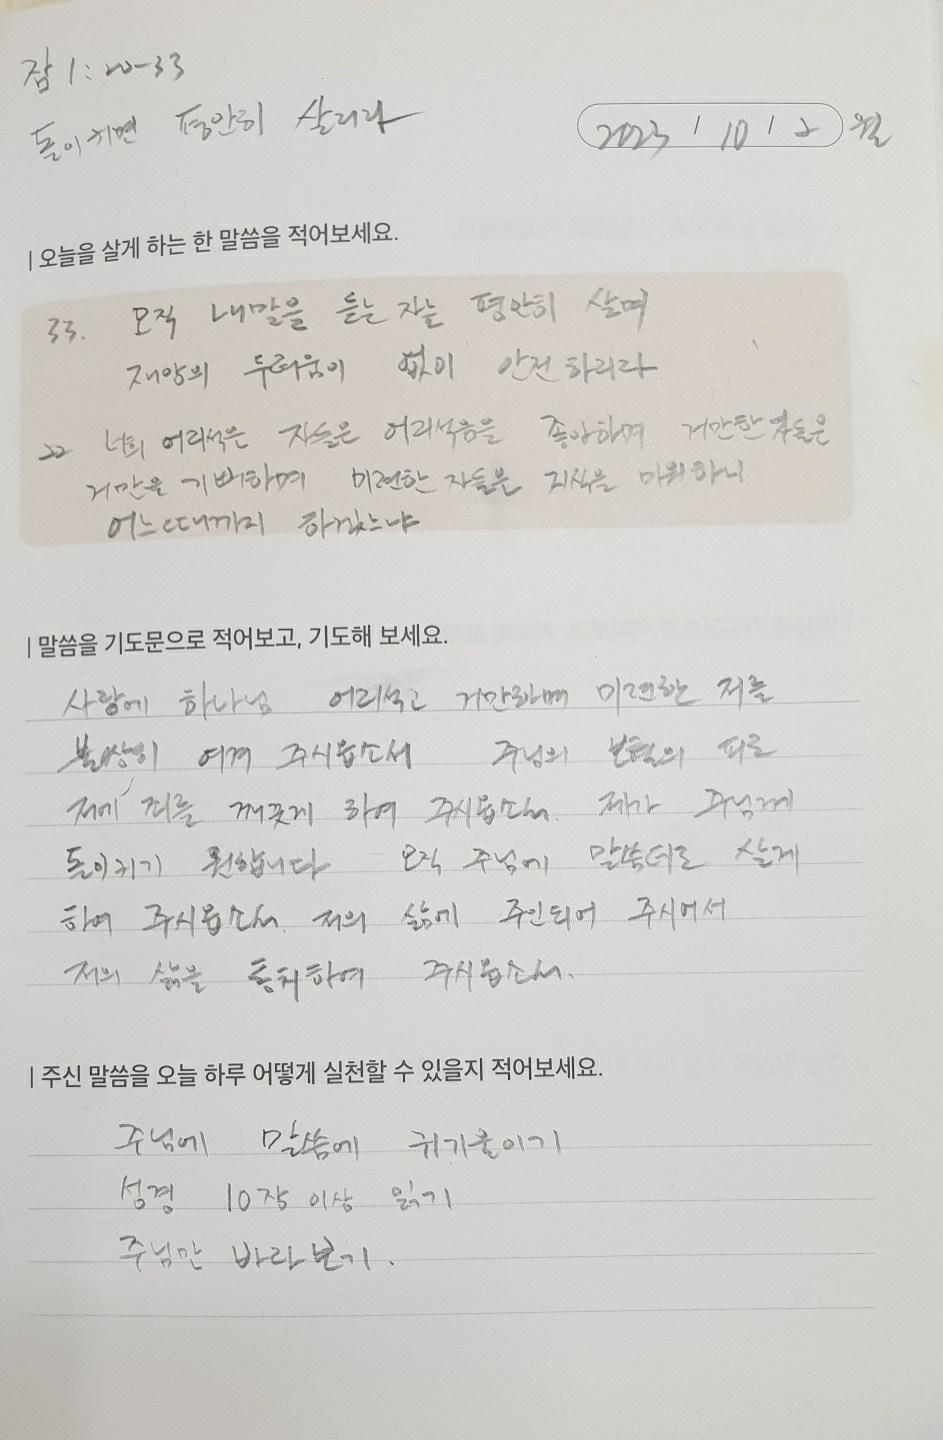 잠 1:20-33
돌이키면 평안히 살리라
2023 / 10 / 2 월
| 오늘을 살게 하는 한 말씀을 적어보세요.
33. 오직 내말을 듣는 자는 평안히 살며
재앙의 두려움이 없이 안전하리라
22 너희 어리석은 자들은 어리석음을 좋아하며 거만한 자들은
거만을 기뻐하며 미련한 자들은 지식을 미워하니
어느때까지 하겠느냐
| 말씀을 기도문으로 적어보고, 기도해 보세요.
사랑에 하나님 어리석고 거만하며 미련한 저를
불쌍히 여겨 주시옵소서 주님의 보혈의 피로
저에 죄를 깨끗게 하여 주시옵소서. 제가 주님께
돌이키기 원합니다 오직 주님에 말씀데로 살게
하여 주시옵소서. 저의 삶에 주인되어 주시어서
저의 삶을 통치하여 주시옵소서.
| 주신 말씀을 오늘 하루 어떻게 실천할 수 있을지 적어보세요.
주님에 말씀에 귀기울이기
성경 10장 이상 읽기
주님만 바라보기.